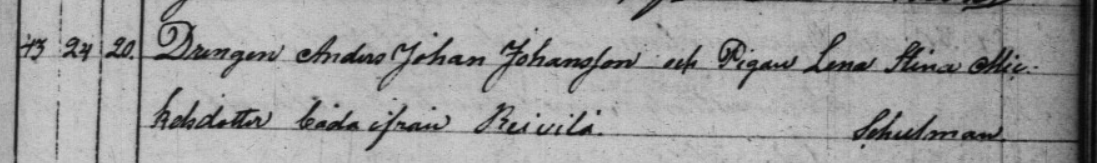 13 24 20. Drengen Anders Johan Johansson och Pigan Lena Stina Mic-
kelsdotter båda ifrån Reivilä. Schulman